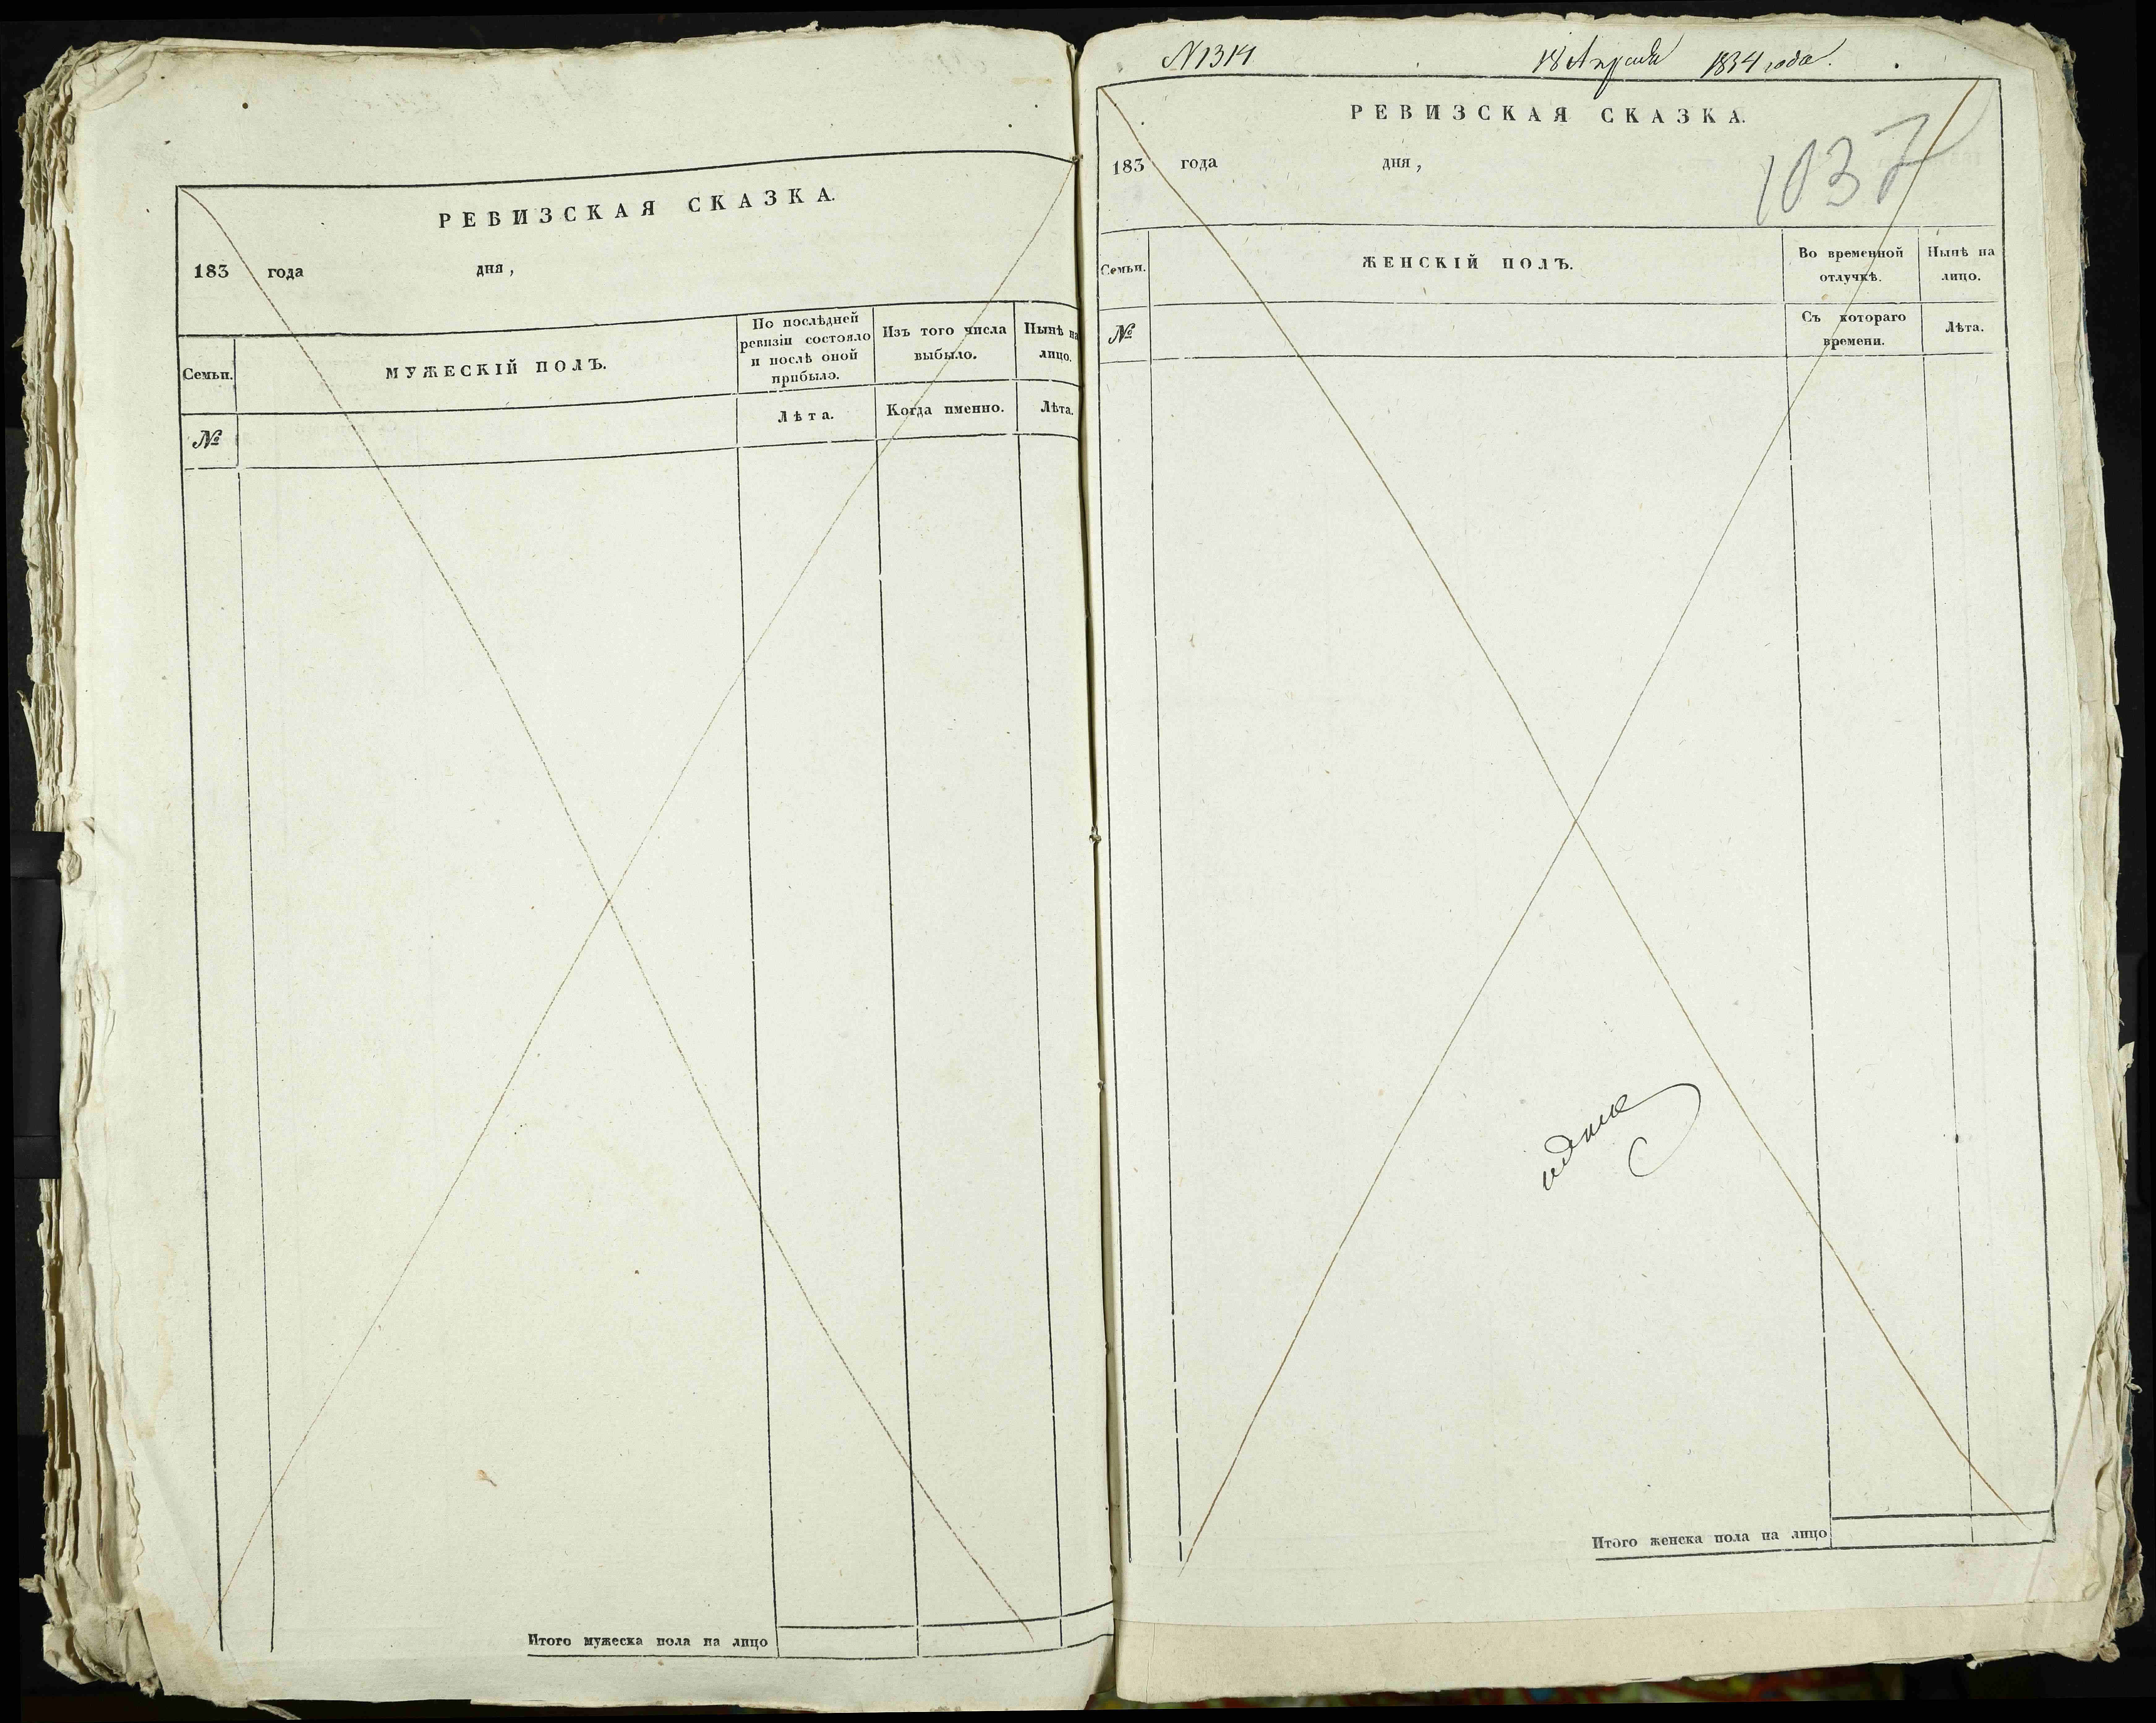 РЕВИЗСКАЯ СКАЗКА.
183 года дня,
Семьи.
МУЖЕСКІЙ ПОЛЪ.
По послѣдней
ревизіи состояло
и послѣ оной
прибыло.
Изъ того числа
выбыло.
Нынѣ на
лицо.
№
Лѣта.
Когда именно.
Лѣта.
Итого мужеска пола на лицо
N1314 18 Апреля 1834 года.
РЕВИЗСКАЯ СКАЗКА.
183 года дня,
1037
Семьи.
ЖЕНСКІЙ ПОЛЪ.
Во временной
отлучкѣ.
Нынѣ на
лицо.
№
Съ котораго
времени.
Лѣта.
Итого женска пола на лицо